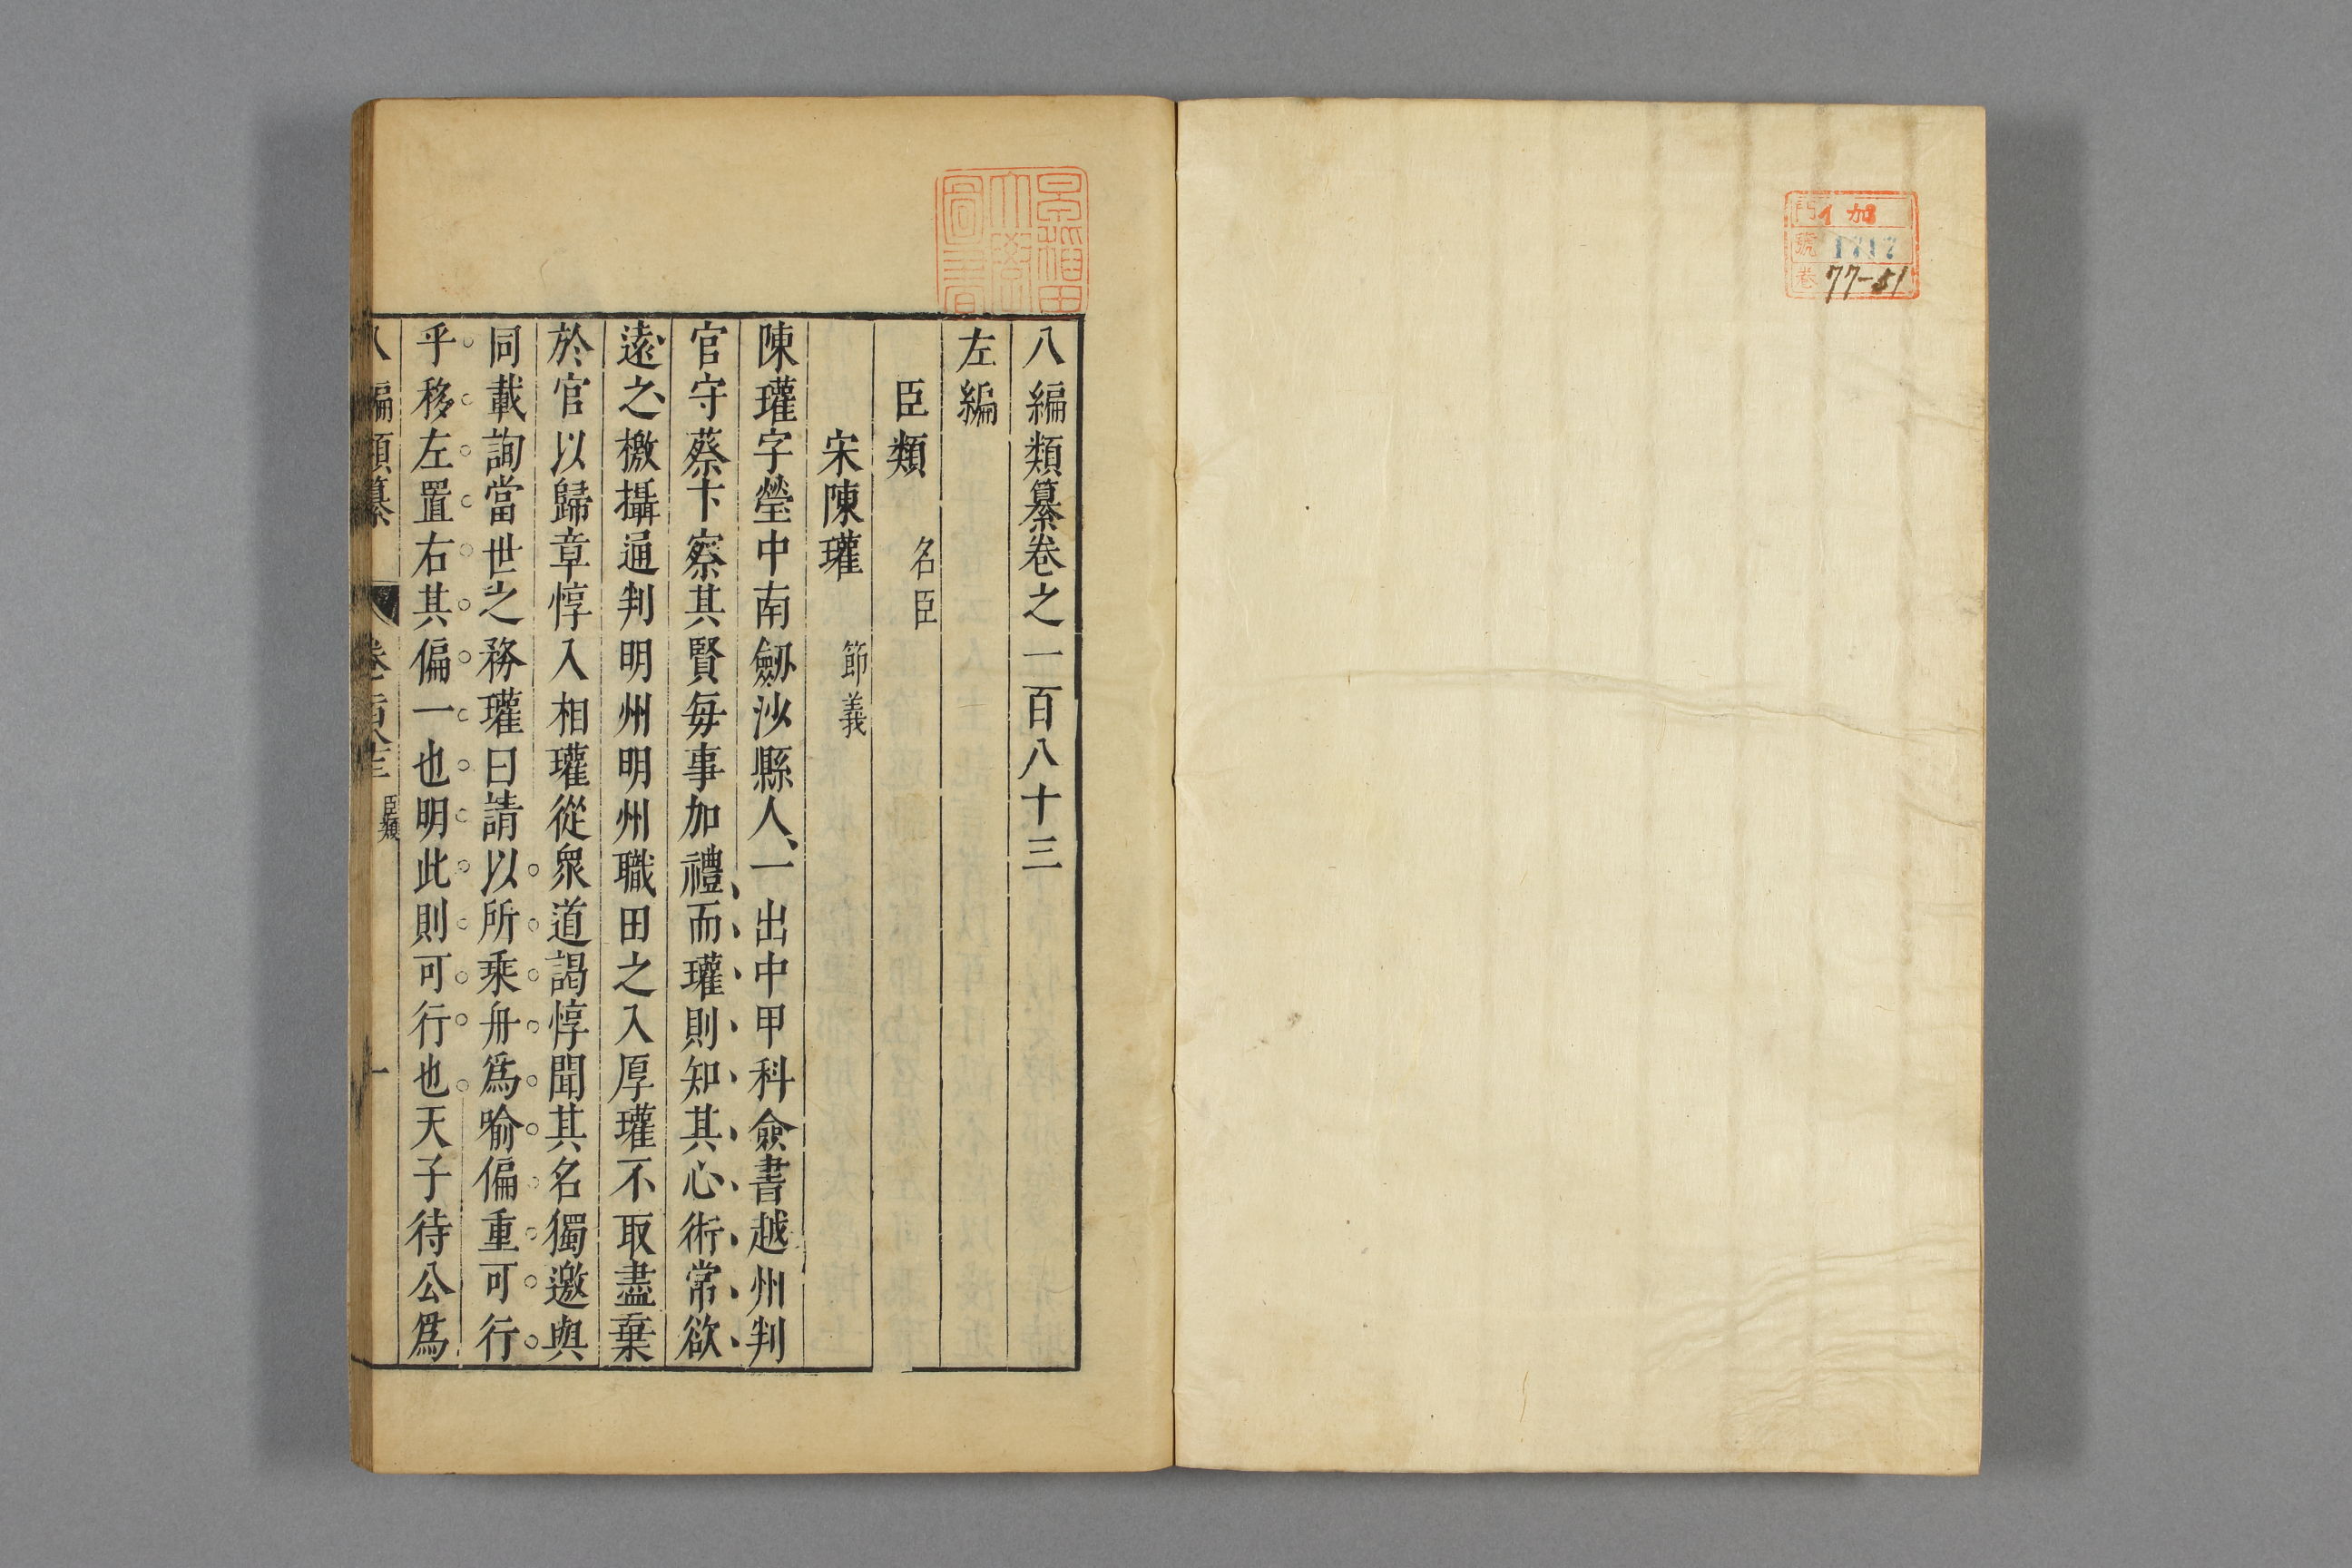 門 イ 加
號 1717
卷 77-51
早稲田
大學
圖書
八編類纂卷之一百八十三
左編
臣類 名臣
宋陳瓘 節義
陳瓘字瑩中南劔沙縣人一出中甲科僉書越州判
官守蔡卞察其賢每事加禮而瓘則知其心術常欲
遠之檄攝通判明州明州職田之入厚瓘不取盡棄
於官以歸章惇入相瓘從衆道謁惇聞其名獨邀與
同載詢當世之務瓘曰請以所乘舟爲喻偏重可行
乎移左置右其偏一也明此則可行也天子待公爲
八編類纂 卷一百八十三 臣類 一